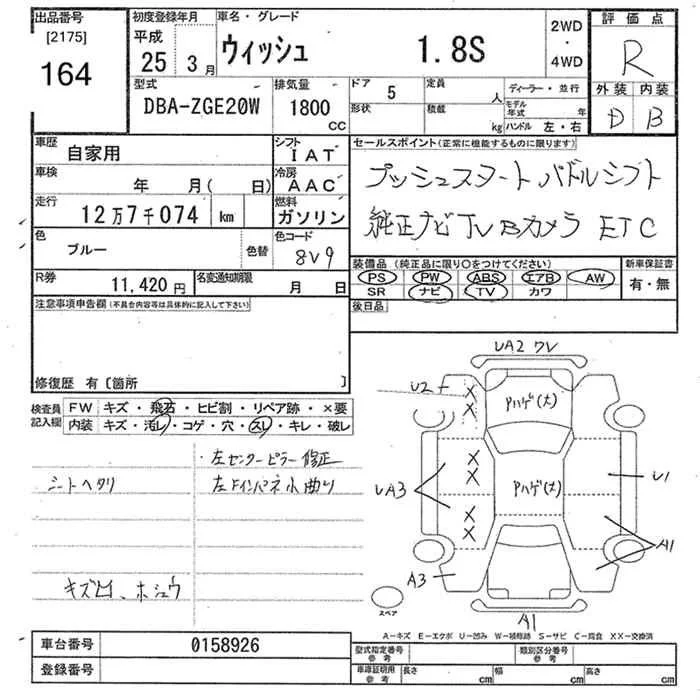 出品番号
[2175]
164
初度登録年月
平成
25 3月
車名・グレード
ウィッシュ 1.8S
2WD
・
4WD
評価点
R
外装 内装
D B
型式
DBA-ZGE20W
排気量
1800
CC
ドア 5
形状
定員 人
積載 kg
ディーラー・並行
モデル年式 年
ハンドル 左・右
車歴 自家用
シフト IAT
車検 年 月( 日)
冷房 AAC
走行 12万7千074 km
燃料 ガソリン
色 ブルー 色替
色コード 8V9
R券 11,420円
名変通知期限 月 日
セールスポイント(正常に機能するものに限ります)
プッシュスタート パドルシフト
純正ナビ TV Bカメラ ETC
装備品 (純正品に限り○をつけてください)
PS PW ABS エアB AW
SR ナビ TV カワ
新車保証書
有・無
後日品
注意事項申告欄(不具合内容等は具体的に記入して下さい)
修復歴 有〔箇所 〕
検査員
記入欄
FW キズ・飛石・ヒビ割・リペア跡・×要
内装 キズ・汚レ・コゲ・穴・スレ・キレ・破レ
・左センターピラー修正
シートヘタリ
左Fインパネ小曲り
キズ凹、ホシュウ
UA2 ワレ
U2
X
X
Pハゲ(大)
X
X
UA3
Pハゲ(大)
U1
X
X
A1
A3
A1
スペア
A-キズ E-エクボ U-凹み W-補修跡 S-サビ C-腐食 XX-交換済
車台番号 0158926
登録番号
型式指定番号
参考
類別区分番号
参考
車庫証明用
参考
長さ cm 幅 cm 高さ cm